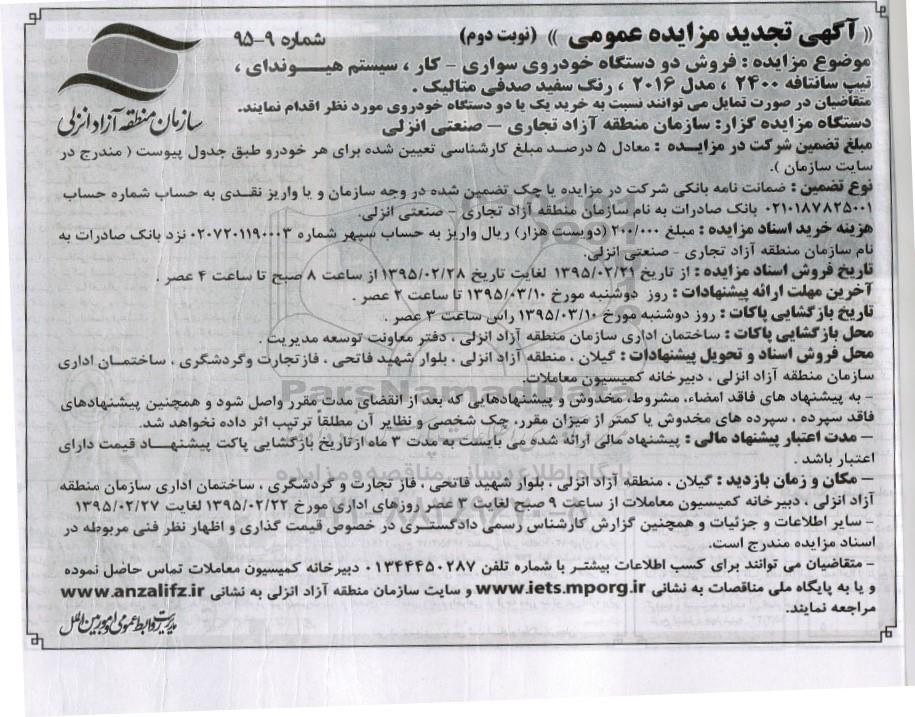 « آگهی تجدید مزایده عمومی » (نوبت دوم) شماره ۹-۹۵
سازمان منطقه آزاد انزلی
موضوع مزایده : فروش دو دستگاه خودروی سواری - کار ، سیستم هیوندای ،
تیپ سانتافه ۲۴۰۰ ، مدل ۲۰۱۶ ، رنگ سفید صدفی متالیک .
متقاضیان در صورت تمایل می توانند نسبت به خرید یک یا دو دستگاه خودروی مورد نظر اقدام نمایند.
دستگاه مزایده گزار: سازمان منطقه آزاد تجاری – صنعتی انزلی
مبلغ تضمین شرکت در مزایده : معادل ۵ درصد مبلغ کارشناسی تعیین شده برای هر خودرو طبق جدول پیوست ( مندرج در
سایت سازمان ).
نوع تضمین : ضمانت نامه بانکی شرکت در مزایده یا چک تضمین شده در وجه سازمان و یا واریز نقدی به حساب شماره حساب
۰۲۱۰۱۸۷۸۲۵۰۰۱ بانک صادرات به نام سازمان منطقه آزاد تجاری - صنعتی انزلی.
هزینه خرید اسناد مزایده : مبلغ ۲۰۰/۰۰۰ (دویست هزار) ریال واریز به حساب سپهر شماره ۰۲۰۷۲۰۱۱۹۰۰۰۳ نزد بانک صادرات به
نام سازمان منطقه آزاد تجاری - صنعتی انزلی.
تاریخ فروش اسناد مزایده : از تاریخ ۱۳۹۵/۰۲/۲۱ لغایت تاریخ ۱۳۹۵/۰۲/۲۸ از ساعت ۸ صبح تا ساعت ۴ عصر .
آخرین مهلت ارائه پیشنهادات : روز دوشنبه مورخ ۱۳۹۵/۰۳/۱۰ تا ساعت ۲ عصر .
تاریخ بازگشایی پاکات : روز دوشنبه مورخ ۱۳۹۵/۰۳/۱۰ راس ساعت ۳ عصر .
محل بازگشایی پاکات : ساختمان اداری سازمان منطقه آزاد انزلی ، دفتر معاونت توسعه مدیریت .
محل فروش اسناد و تحویل پیشنهادات : گیلان ، منطقه آزاد انزلی ، بلوار شهید فاتحی ، فاز تجارت وگردشگری ، ساختمان اداری
سازمان منطقه آزاد انزلی ، دبیرخانه کمیسیون معاملات.
ParsNamadData
- به پیشنهاد های فاقد امضاء، مشروط، مخدوش و پیشنهادهایی که بعد از انقضای مدت مقرر واصل شود و همچنین پیشنهادهای
فاقد سپرده ، سپرده های مخدوش یا کمتر از میزان مقرر، چک شخصی و نظایر آن مطلقاً ترتیب اثر داده نخواهد شد.
– مدت اعتبار پیشنهاد مالی : پیشنهاد مالی ارائه شده می بایست به مدت ۳ ماه از تاریخ بازگشایی پاکت پیشنهاد قیمت دارای
اعتبار باشد .
پایگاه اطلاع رسانی مناقصه و مزایده
– مکان و زمان بازدید : گیلان ، منطقه آزاد انزلی ، بلوار شهید فاتحی ، فاز تجارت و گردشگری ، ساختمان اداری سازمان منطقه
آزاد انزلی ، دبیر خانه کمیسیون معاملات از ساعت ۹ صبح لغایت ۳ عصر روزهای اداری مورخ ۱۳۹۵/۰۲/۲۲ لغایت ۱۳۹۵/۰۲/۲۷
- سایر اطلاعات و جزئیات و همچنین گزارش کارشناس رسمی دادگستری در خصوص قیمت گذاری و اظهار نظر فنی مربوطه در
اسناد مزایده مندرج است.
- متقاضیان می توانند برای کسب اطلاعات بیشتر با شماره تلفن ۰۱۳۴۴۴۵۰۲۸۷ دبیرخانه کمیسیون معاملات تماس حاصل نموده
و یا به پایگاه ملی مناقصات به نشانی www.iets.mporg.ir و سایت سازمان منطقه آزاد انزلی به نشانی www.anzalifz.ir
مراجعه نمایند.
مدیریت روابط عمومی و امور بین الملل